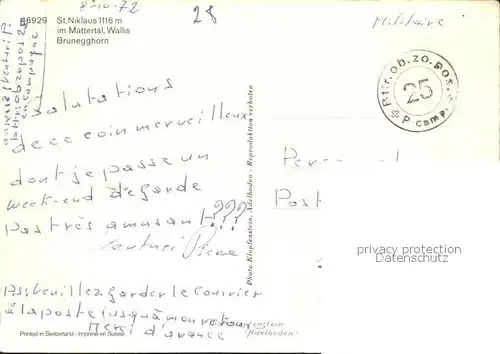 8-10-72
28
Militaire
46929 St. Niklaus 1116 m
im Mattertal, Wallis
Brunegghorn
en campagne
Salutations
de ce coin merveilleux
dont je passe un
week-end de garde
pas très amusant!???
Venturi Pierre
P.S. Veuillez garder le courrier
à la poste jusqu'à mon retour
Merci d'avance
Printed in Switzerland - Imprimé en Suisse
Photo Klopfenstein, Adelboden - Reproduktion verboten
Klopfenstein
"Adelboden"
Bttr.ob.zo.pos.
25
P camp.
Post
privacy protection
Datenschutz